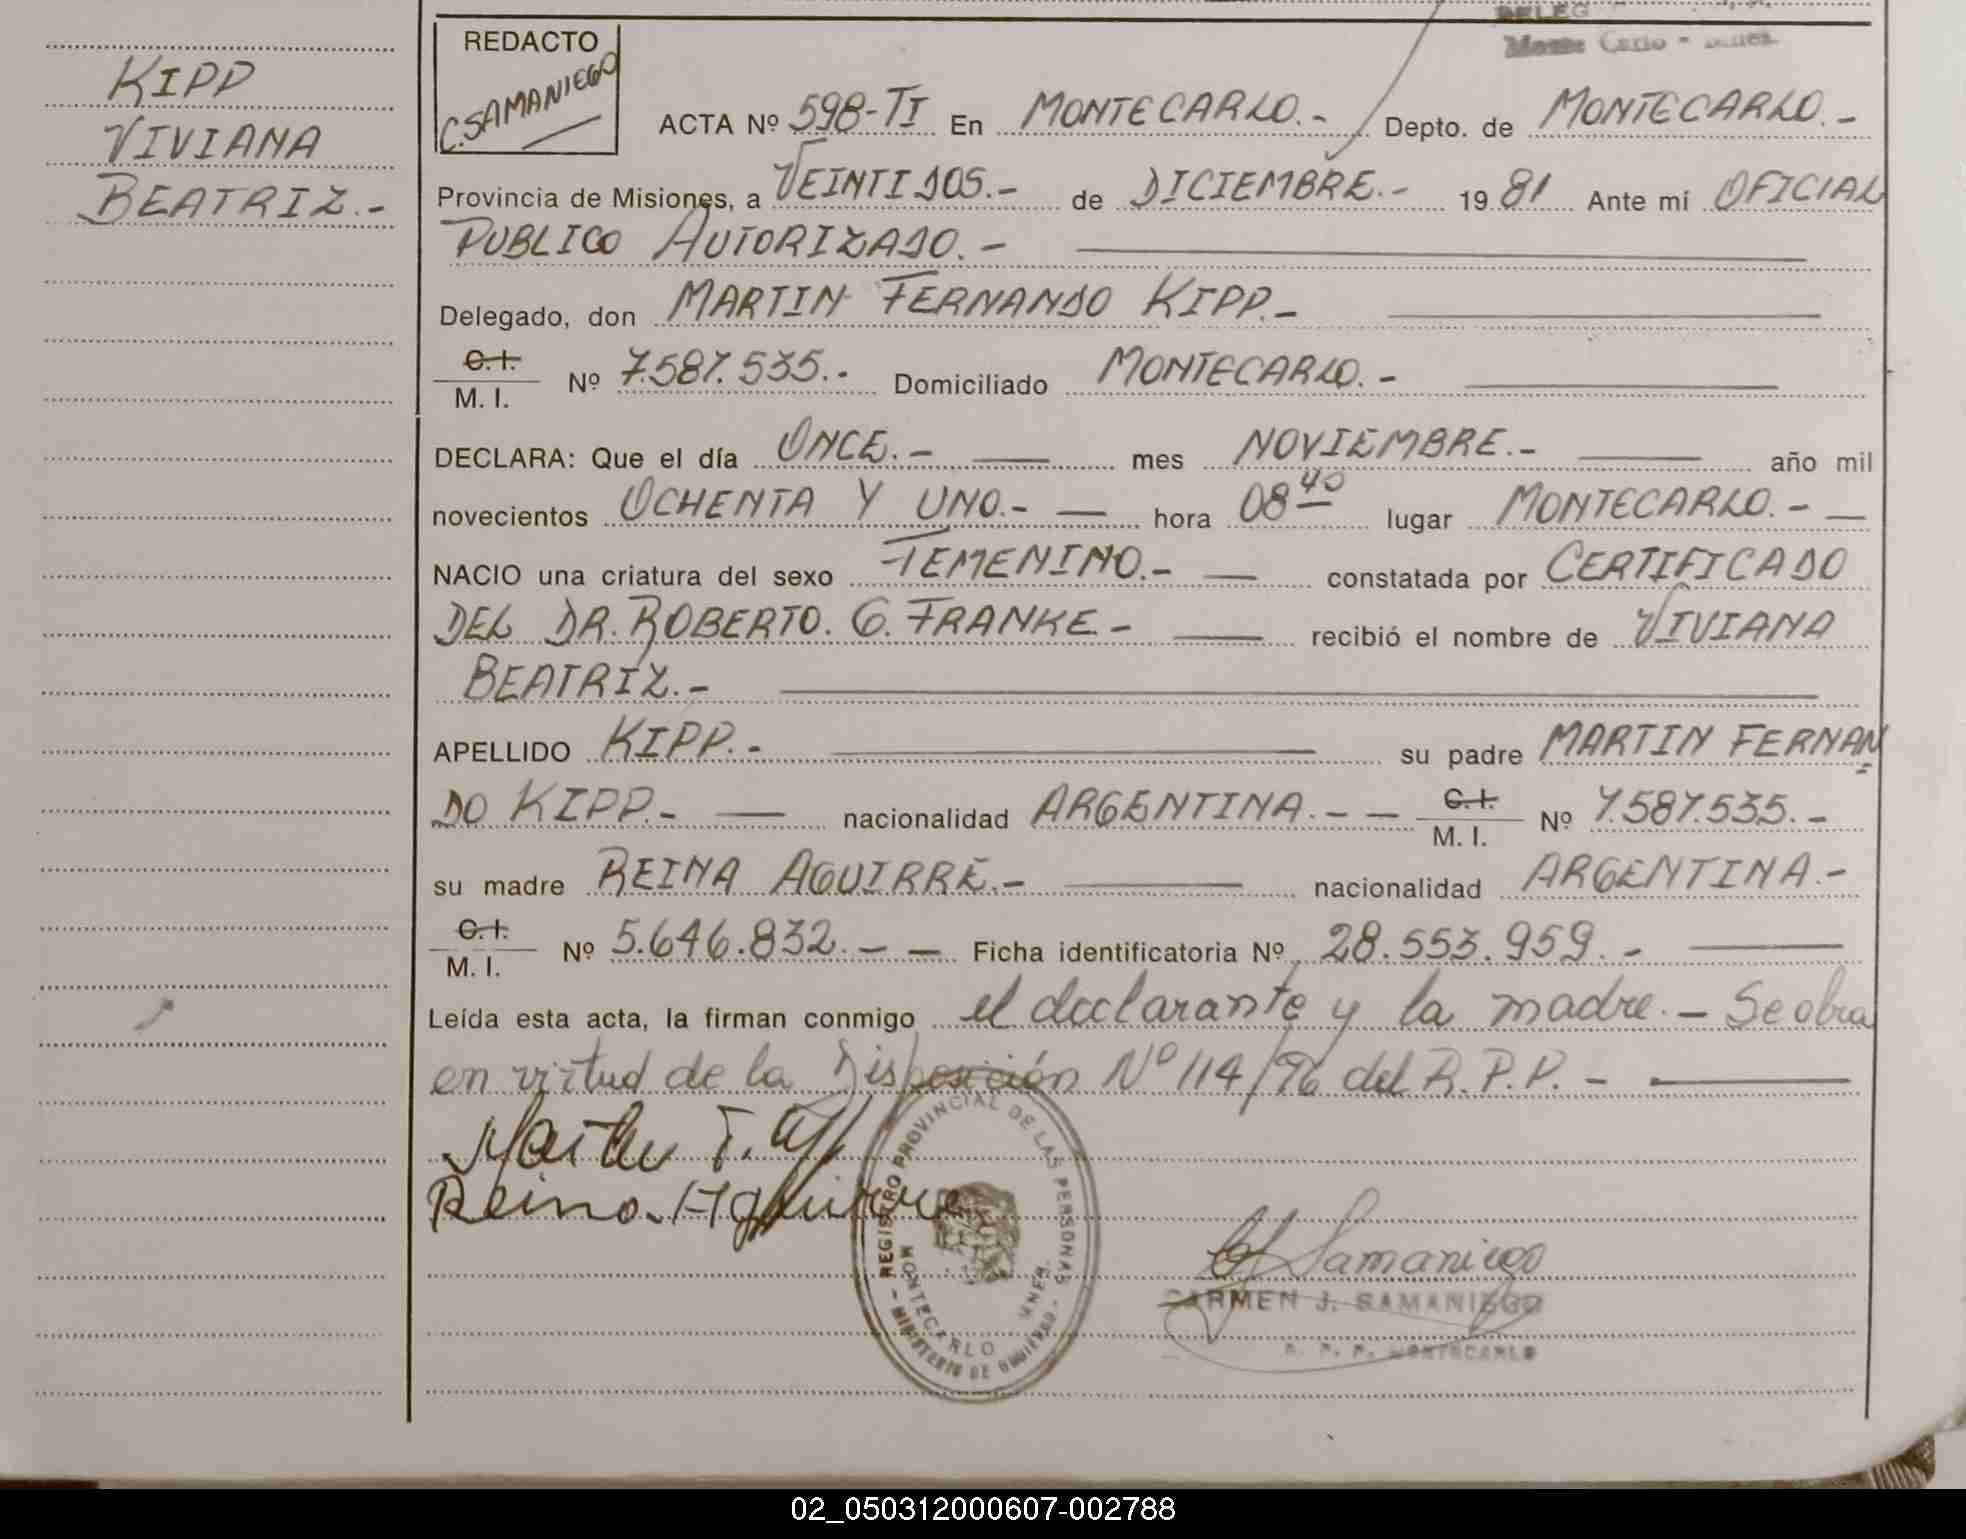 KIPP
VIVIANA
BEATRIZ.-
REDACTO
C. SAMANIEGO
DELEG
Monte Carlo -
ACTA Nº 598-TI En MONTECARLO.- Depto. de MONTECARLO.-
Provincia de Misiones, a VEINTIDOS.- de DICIEMBRE.- 19 81 Ante mí OFICIAL
PUBLICO AUTORIZADO.-
Delegado, don MARTIN FERNANDO KIPP.-
C. I.
M. I. Nº 7.587.535.- Domiciliado MONTECARLO.-
DECLARA: Que el día ONCE.- mes NOVIEMBRE.- año mil
novecientos OCHENTA Y UNO.- hora 08 40 lugar MONTECARLO.-
NACIO una criatura del sexo FEMENINO.- constatada por CERTIFICADO
DEL DR. ROBERTO. G. FRANKE.- recibió el nombre de VIVIANA
BEATRIZ.-
APELLIDO KIPP.- su padre MARTIN FERNAN=
DO KIPP.- nacionalidad ARGENTINA.- C. I.
M. I. Nº 7.587.535.-
su madre REINA AGUIRRE.- nacionalidad ARGENTINA.-
C. I.
M. I. Nº 5.646.832.- Ficha identificatoria Nº 28.553.959.-
Leída esta acta, la firman conmigo el declarante y la madre.- Se obra
en virtud de la Disposición Nº 114/96 del R.P.P.-
Reina Aguirre
REGISTRO PROVINCIAL DE LAS PERSONAS
MONTECARLO
MINISTERIO DE GOBIERNO
Samaniego
CARMEN J. SAMANIEGO
R. P. P. MONTECARLO
02_050312000607-002788